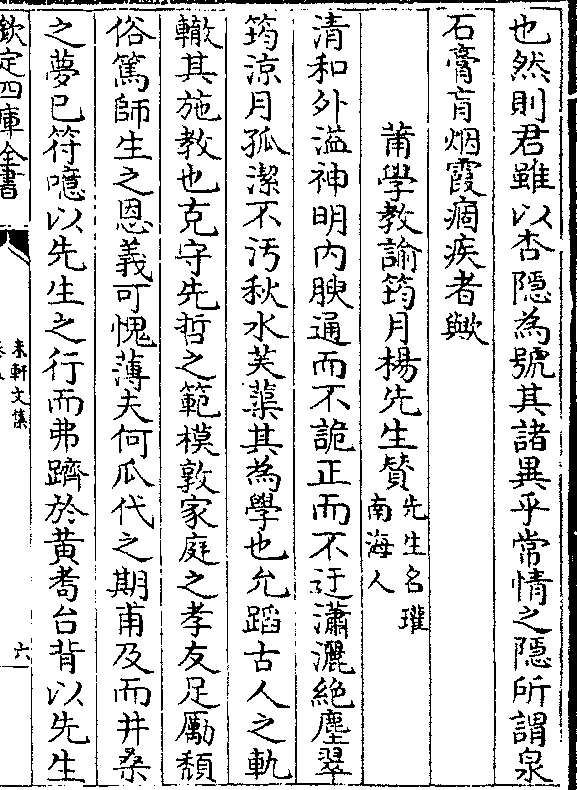 也然則君雖以杏隱為號其諸異乎常情之隱所謂泉
石膏肓烟霞痼疾者歟
莆學教諭筠月楊先生贊先生名瓘南海人
清和外溢神明内腴通而不詭正而不迂瀟灑絶塵翠
筠涼月孤潔不汚秋水芙蕖其為學也允蹈古人之軌
轍其施教也克守先哲之範模敦家庭之孝友足厲頽
俗篤師生之恩義可愧薄夫何瓜代之期甫及而井桑
之夢已符噫以先生之行而弗躋於黄耉台背以先生
欽定四庫全書
未軒文集
六